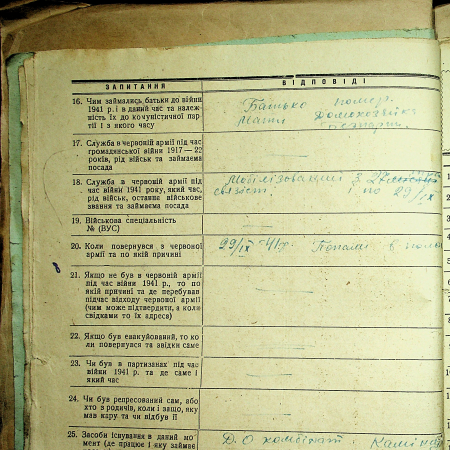 ЗАПИТАННЯ ВІДПОВІДІ
16. Чим займались батьки до війни
1941 р. і в даний час та належ-
ність їх до комуністичної пар
тії і з якого часу
Батько помер.
Мати домохозяйка
17. Служба в червоній армії під час
громадянської війни 1917—22
років, рід військ та займаєма
посада
18. Служба в червоній армії під
час війни 1941 року, який час,
рід військ, останнє військове
звання та займаєма посада
Мобілізований з 27
і по 29/IX
19. Військова спеціальність
№ (ВУС)
20. Коли повернувся з червоної
армії та по якій причині
29/IX 41 р. Попали в
21. Якщо не був в червоній армії
під час війни 1941 р., то по
якій причині та де перебував
підчас відходу червоної армії
(чим може підтвердити, а коли
свідками то їх адреса)
22. Якщо був евакуйований, то ко
ли повернувся та звідки саме
23. Чи був в партизанах під час
війни 1941 р. та де саме і
який час
24. Чи був репресований сам, або
хто з родичів, коли і защо, яку
мав кару та чи відбув її
25. Засоби існування в даний мо
мент (де працює і яку займає
Д. О комбінат